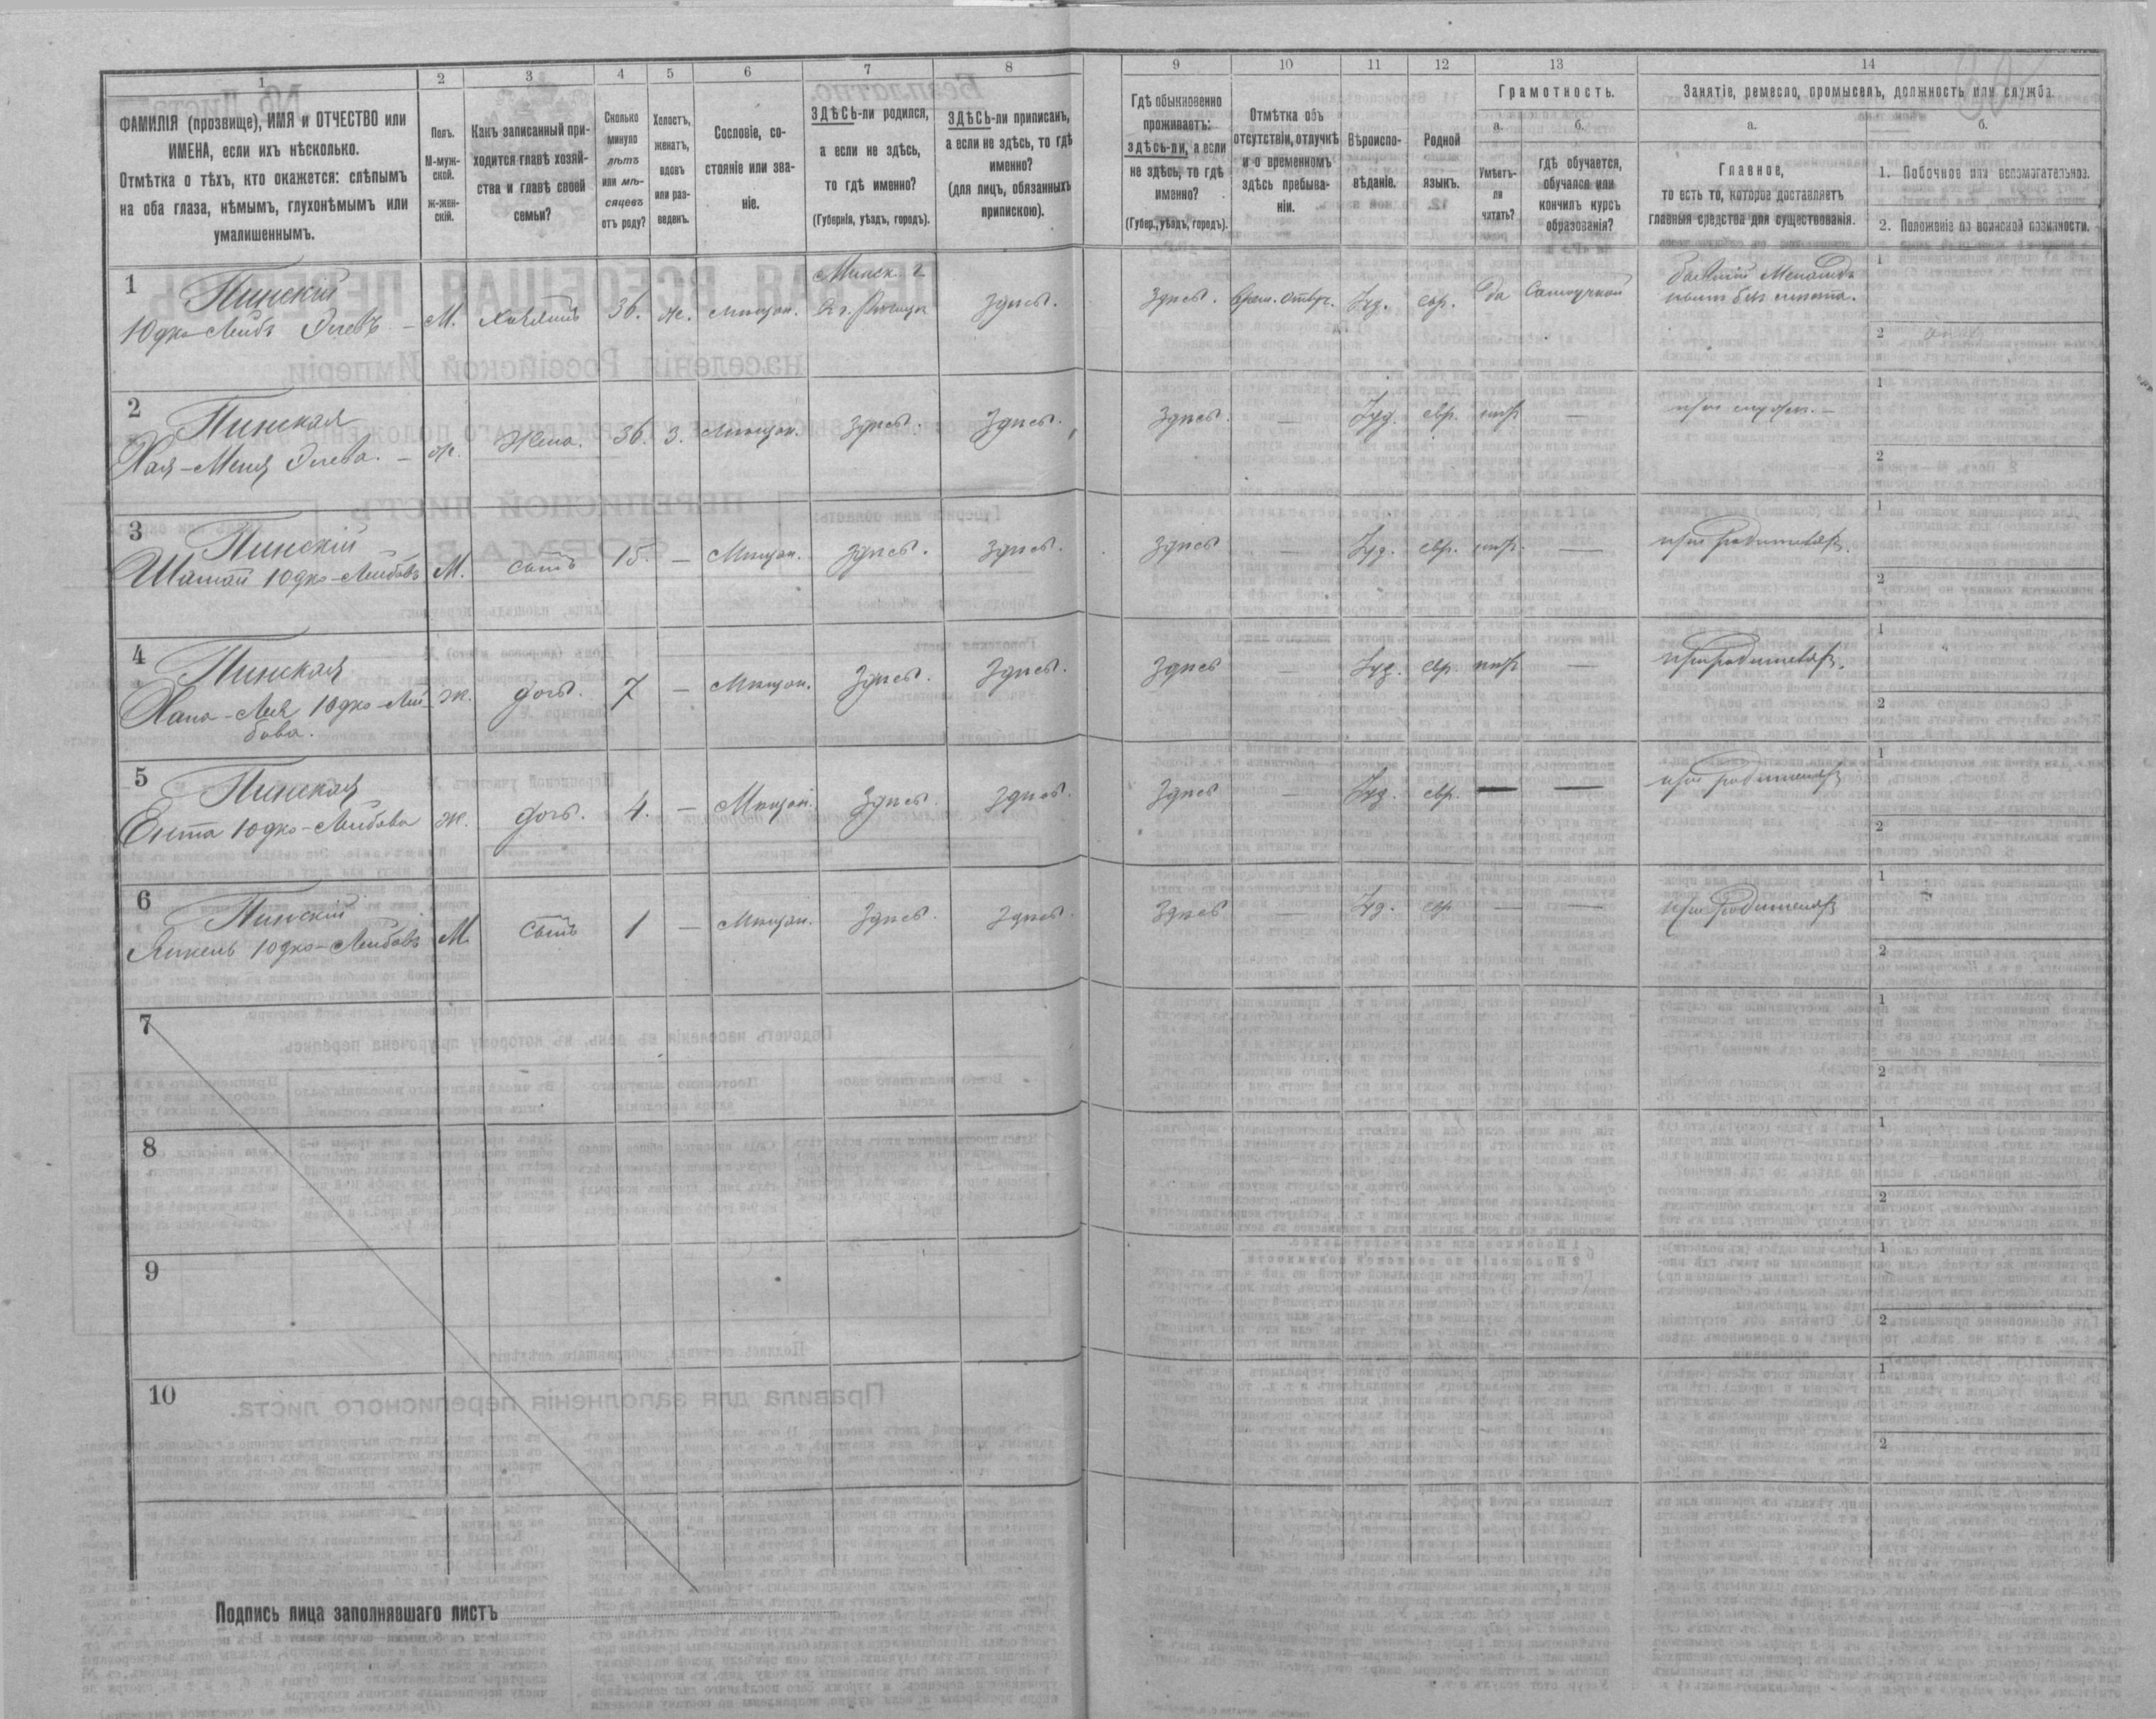 1
2
3
4
5
6
7
8
9
10
11
12
13
14
ФАМИЛІЯ (прозвище), ИМЯ и ОТЧЕСТВО или
ИМЕНА, если ихъ нѣсколько.
Отмѣтка о тѣхъ, кто окажется: слѣпымъ
на оба глаза, нѣмымъ, глухонѣмымъ или
умалишеннымъ.
Полъ.
М-муж-
ской.
ж-жен-
скій.
Какъ записанный при-
ходится главѣ хозяй-
ства и главѣ своей
семьи?
Сколько
минуло
лѣтъ
или мѣ-
сяцевъ
отъ роду?
Холостъ,
женатъ,
вдовъ
или раз-
веденъ.
Сословіе, со-
стояніе или зва-
ніе.
ЗДѢСЬ-ли родился,
а если не здѣсь,
то гдѣ именно?
(Губернія, уѣздъ, городъ).
ЗДѢСЬ-ли приписанъ,
а если не здѣсь, то гдѣ
именно?
(для лицъ, обязанныхъ
припискою).
Гдѣ обыкновенно
проживаетъ:
здѣсь-ли, а если
не здѣсь, то гдѣ
именно?
(Губер., уѣздъ, городъ).
Отмѣтка объ
отсутствіи, отлучкѣ
и о временномъ
здѣсь пребыва-
ніи.
Вѣроиспо-
вѣданіе.
Родной
языкъ.
Грамотность.
а.
Умѣетъ-
ли
читать?
б.
гдѣ обучается,
обучался или
кончилъ курсъ
образованія?
Занятіе, ремесло, промыселъ, должность или служба.
а.
Главное,
то есть то, которое доставляетъ
главныя средства для существованія.
б.
1. Побочное или вспомогательное.
2. Положеніе по воинской повинности.
1
Пинскій
Юдко-Лейбъ
М.
Хозяинъ
36.
ж.
мѣщан.
Минск. г.
здѣсь.
Здѣсь.
врем. отлуч.
Іуд.
евр.
да
Самоучкой
1
2
2
Пинская
Хая-Меня
ж.
Жена.
36.
З.
Мѣщан.
здѣсь.
Здѣсь.
Здѣсь.
—
Іуд.
евр.
нѣт
—
при мужѣ. —
1
2
3
Пинскій
Юдко-Лейбовъ
М.
сынъ
15.
—
Мѣщан.
здѣсь.
здѣсь.
здѣсь
—
Іуд.
евр.
нѣт.
—
при родителях.
1
2
4
Пинская
Хана-Лея Юдко-Лей
бова.
ж.
дочь.
7
—
Мѣщан.
Здѣсь.
Здѣсь.
Здѣсь
—
Іуд.
евр.
нѣт
—
при родителях.
1
2
5
Пинская
Ента Юдко-Лейбова
ж.
дочь.
4.
—
Мѣщан.
Здѣсь.
Здѣсь.
Здѣсь
—
Іуд.
евр.
—
—
при родителях
1
2
6
Пинскій
Янкель Юдко-Лейбовъ
М.
сынъ
1
—
Мѣщан.
Здѣсь.
Здѣсь.
Здѣсь
—
Іуд.
евр
—
—
при родителях
1
2
7
1
2
8
1
2
9
1
2
10
1
2
Подпись лица заполнявшаго листъ